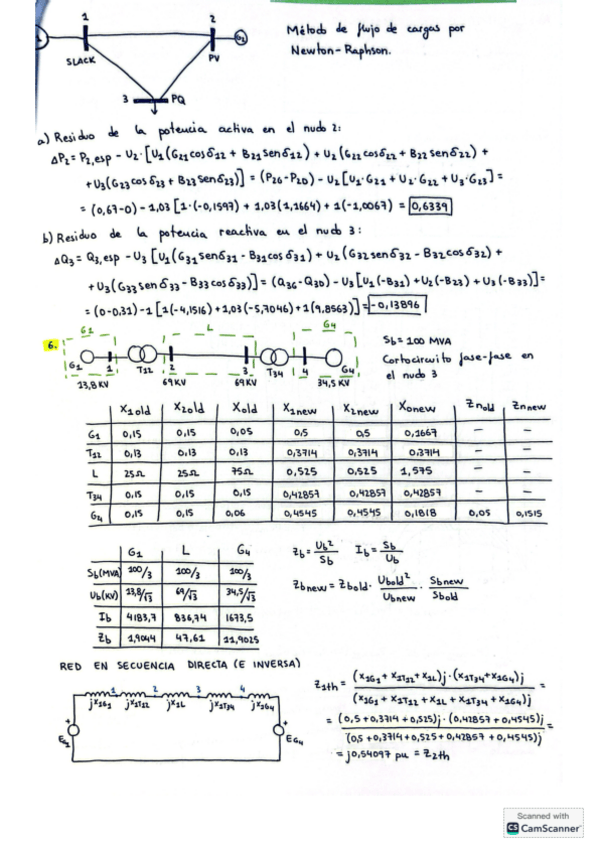 1
2
Método de flujo de cargas por
1
G2
Newton-Raphson.
SLACK
PV
3
PQ
a) Residuo de la potencia activa en el nudo 2:
ΔP2 = P2,esp - U2·[U1(G21cosδ12 + B21senδ12) + U2(G22cosδ22 + B22senδ22) +
+U3(G23cosδ23 + B23senδ23)] = (P2G-P2D) - U2[U1·G21 + U2·G22 + U3·G23] =
= (0,67-0) - 1,03[1·(-0,1597) + 1,03(1,1664) + 1(-1,0067) = 0,6339
b) Residuo de la potencia reactiva en el nudo 3:
ΔQ3 = Q3,esp - U3[U1(G31senδ31 - B31cosδ31) + U2(G32senδ32 - B32cosδ32) +
+ U3(G33senδ33 - B33cosδ33)] = (Q3G-Q3D) - U3[U1(-B31) + U2(-B23) + U3(-B33)] =
= (0-0,31) - 1[1(-4,1516) + 1,03(-5,7046) + 1(9,8563)] = -0,13896
G1
L
G4
6.
G1
1
T12
2
3
T34
4
G4
13,8 KV
69 KV
69 KV
34,5 KV
Sb = 100 MVA
Cortocircuito fase-fase en
el nudo 3
X1old X2old Xoold X1new X2new Xonew Znold Znnew
G1 0,15 0,15 0,05 0,5 0,5 0,1667 - -
T12 0,13 0,13 0,13 0,3714 0,3714 0,3714 - -
L 25Ω 25Ω 75Ω 0,525 0,525 1,575 - -
T34 0,15 0,15 0,15 0,42857 0,42857 0,42857 - -
G4 0,15 0,15 0,06 0,4545 0,4545 0,1818 0,05 0,1515
G1 L G4
Sb(MVA) 100/3 100/3 100/3
Ub(KV) 13,8/√3 69/√3 34,5/√3
Ib 4183,7 836,74 1673,5
Zb 1,9044 47,61 11,9025
Zb = Ub²/Sb Ib = Sb/Ub
Zbnew = Zbold · Ubold²/Ubnew · Sbnew/Sbold
RED EN SECUENCIA DIRECTA (E INVERSA)
1 2 3 4
jX1G1 jX1T12 jX1L jX1T34 jX1G4
EG1
EG4
Z1th = (X1G1 + X1T12 + X1L)j · (X1T34 + X1G4)j / (X1G1 + X1T12 + X1L + X1T34 + X1G4)j =
= (0,5 + 0,3714 + 0,525)j · (0,42857 + 0,4545)j / (0,5 + 0,3714 + 0,525 + 0,42857 + 0,4545)j =
= j0,54097 pu = Z2th
Scanned with
CS CamScanner